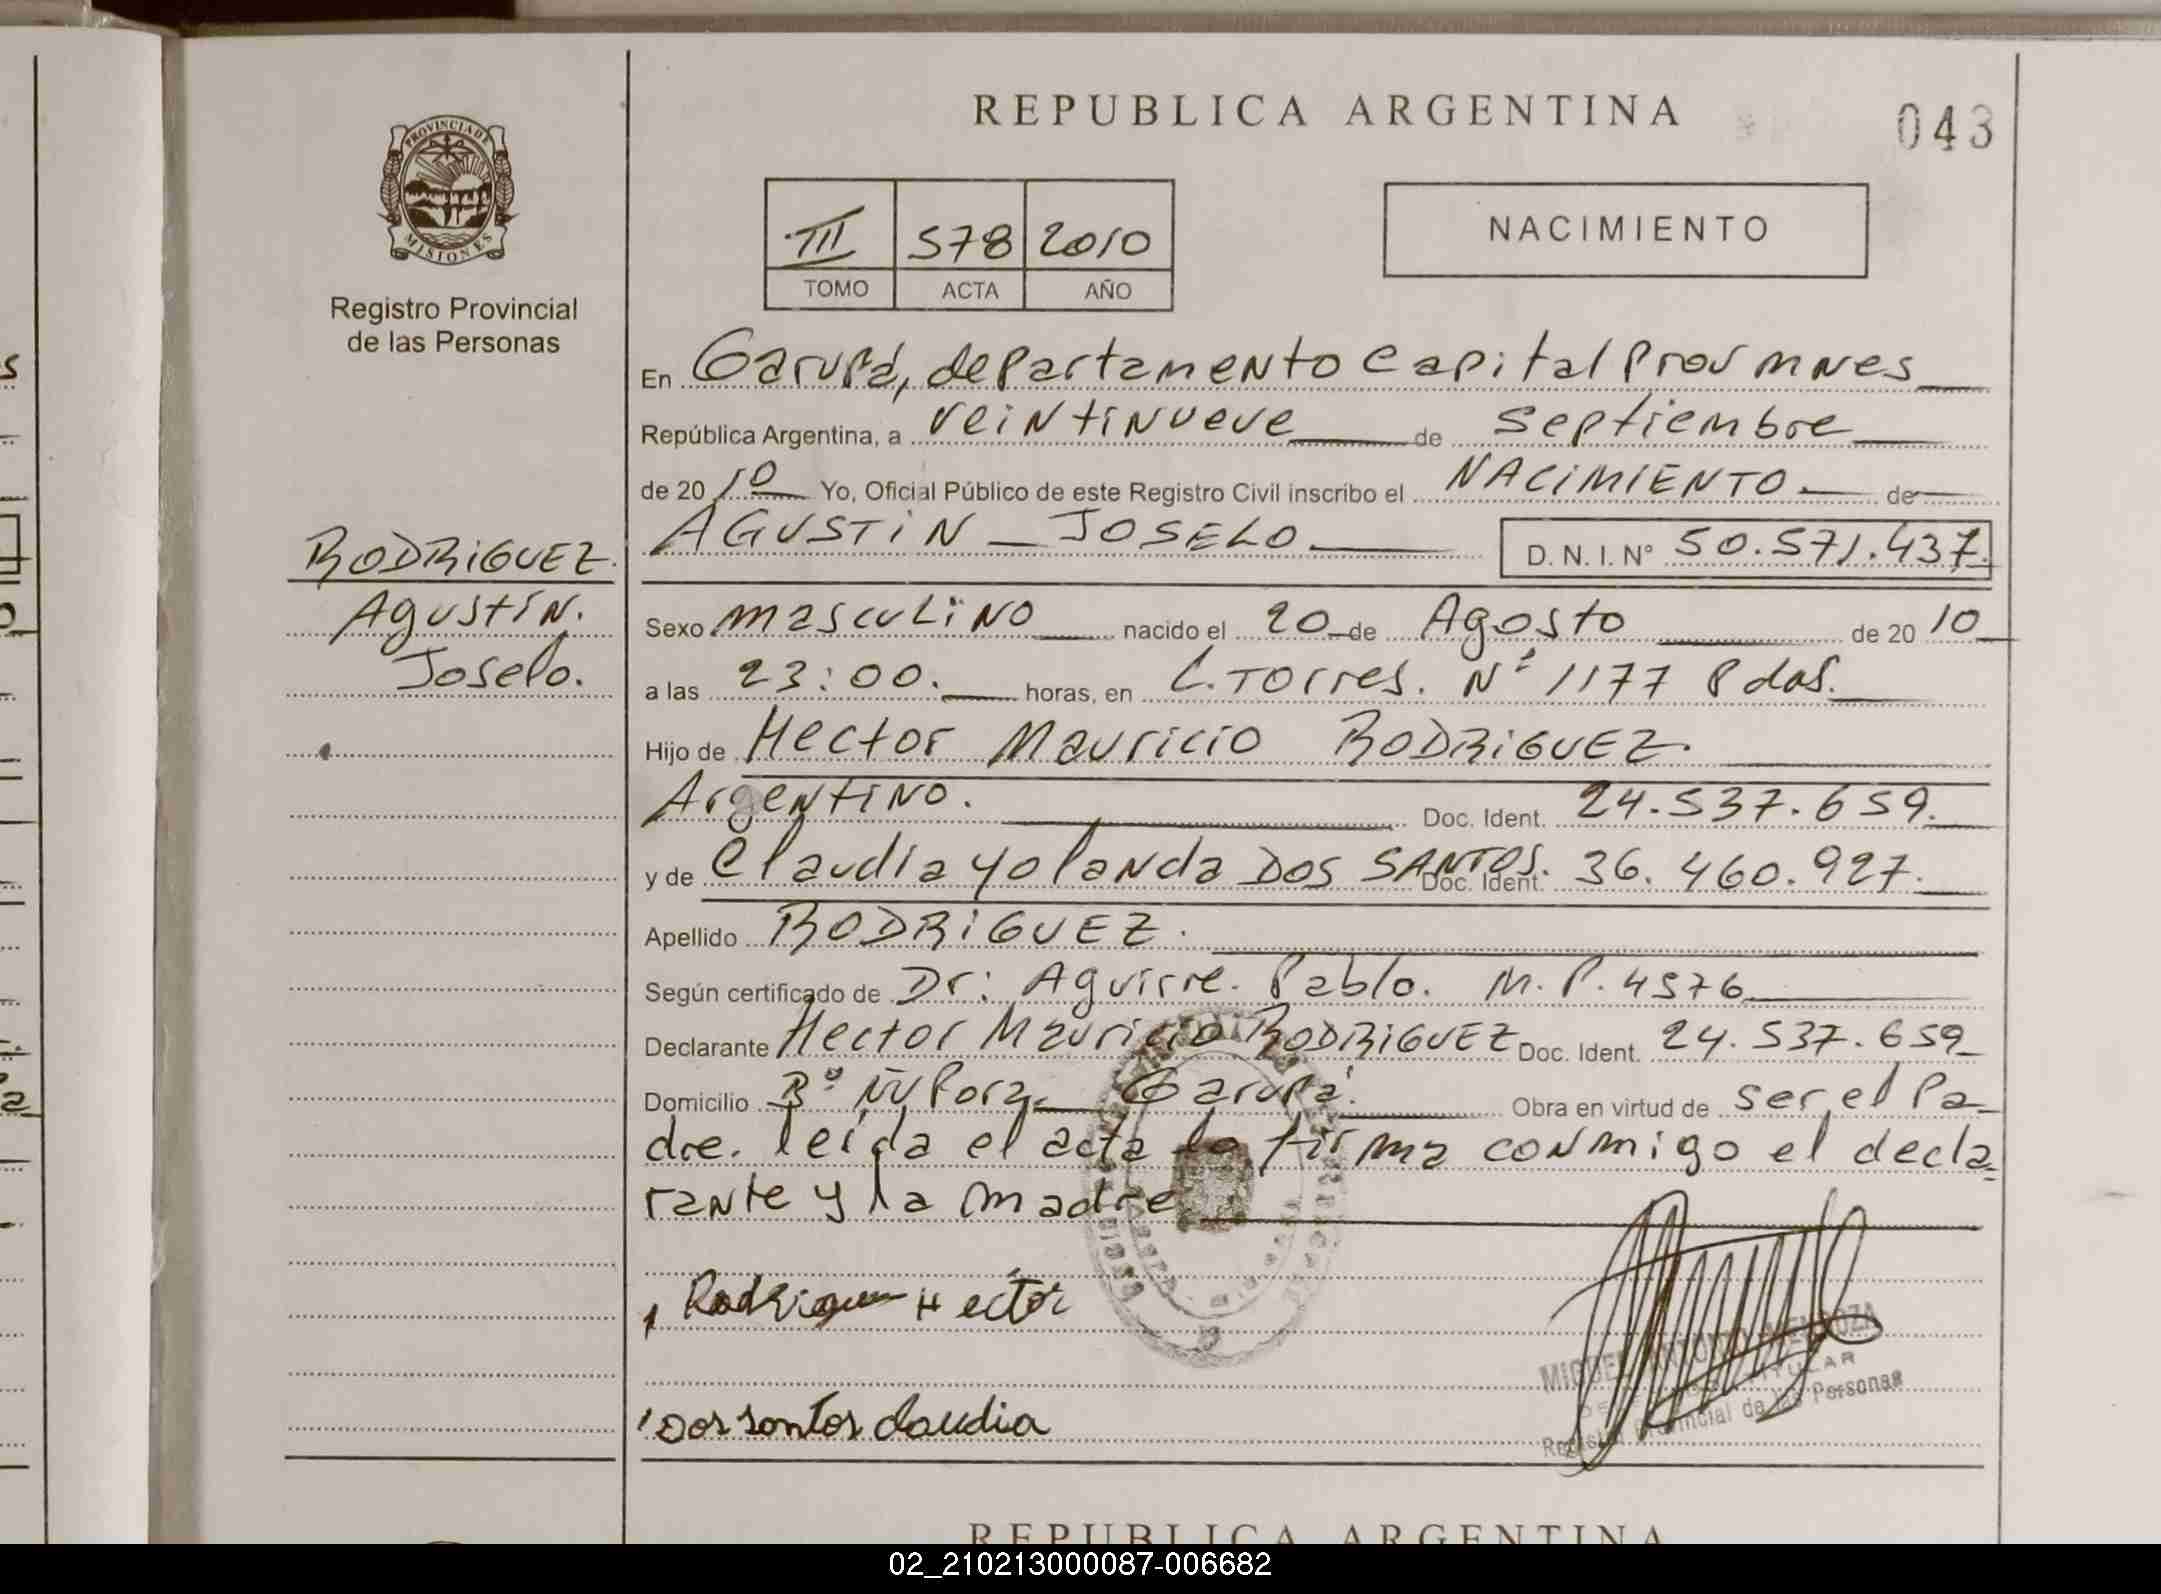 REPUBLICA ARGENTINA
043
PROVINCIA DE
MISIONES
Registro Provincial
de las Personas
III 578 2010
TOMO ACTA AÑO
NACIMIENTO
En Garupá, departamento Capital Prov mnes
República Argentina, a veintinueve de septiembre
de 20 10 Yo, Oficial Público de este Registro Civil inscribo el NACIMIENTO de
AGUSTIN JOSELO D. N. I. N° 50.571.437
RODRIGUEZ
Agustín.
Joselo.
Sexo masculino nacido el 20 de Agosto de 20 10
a las 23:00. horas, en L. Torres. N° 1177 Pdas.
Hijo de Hector Mauricio RODRIGUEZ.
Argentino. Doc. Ident. 24.537.659.
y de Claudia Yolanda DOS SANTOS. Doc. Ident. 36.460.927.
Apellido RODRIGUEZ.
Según certificado de Dr: Aguirre. Pablo. M.P. 4576
Declarante Hector Mauricio RODRIGUEZ Doc. Ident. 24.537.659
Domicilio B° Ñu Pora. Garupá. Obra en virtud de ser el Pa-
dre. leída el acta la firma conmigo el decla-
rante y la madre
Rodriguez Hector
Dos santos Claudia
MIGUEL ANTONIO MENDOZA
TITULAR
Registro Provincial de las Personas
REPUBLICA ARGENTINA
02_210213000087-006682